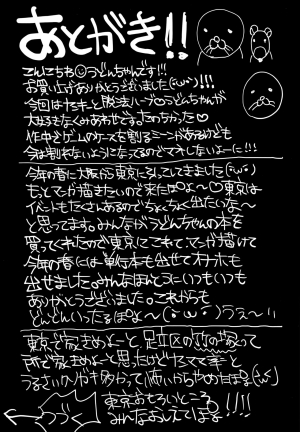 あとがき!!
こんにちわ うどんちゃんです!!
お買い上げありがとうございました(´ω`)!!!
今回はヤンキーと脱法ハーブとうどんちゃんが
大好きなくみあわせできてたのちかった♡
作中でゲームのケースを割るシーンがあるけども
今は割れないようになってるのでマネしないよーに!!!
今年の春に大阪から東京に引っこしてきました
もっとマンガ描きたいので来たぽよ〜♡東京は
イベントもたくさんあるのでちょくちょく出たいな〜
と思ってます。みんながうどんちゃんの本を
買ってくれたので東京にこれてマンガ描けて
今年の春には単行本も出せてオナホも
出せました。みんなほんとにいつもいつも
ありがとうございました。これからも
どんどんいったるぽよ〜(・ω・)うえ〜い
東京で家きめよーと足立区の
所で家きめよーと思ったけど
うるさい人が多かって怖いからやめたぽよ
つづく
東京おもろいところ
みんなおしえてぽよ!!!!